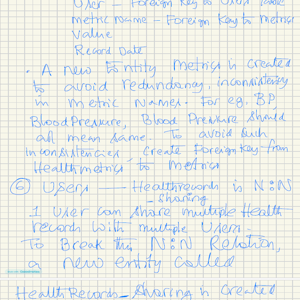 User - Foreign Key to Users Table
metric name - Foreign Key to metrics
Value
Record Date
• A new Entity Metrics is created
to avoid redundancy, inconsistency
in metric names. For eg. BP,
BloodPressure, Blood Pressure should
all mean same. To avoid such
inconsistencies, Create Foreign Key from
Healthmetrics to Metrics
⑥ Users — Healthrecords is N:N
- sharing
1 User can share multiple Health
records with multiple Users.
To Break this N:N Relation,
a new entity called
HealthRecords_Sharing is created